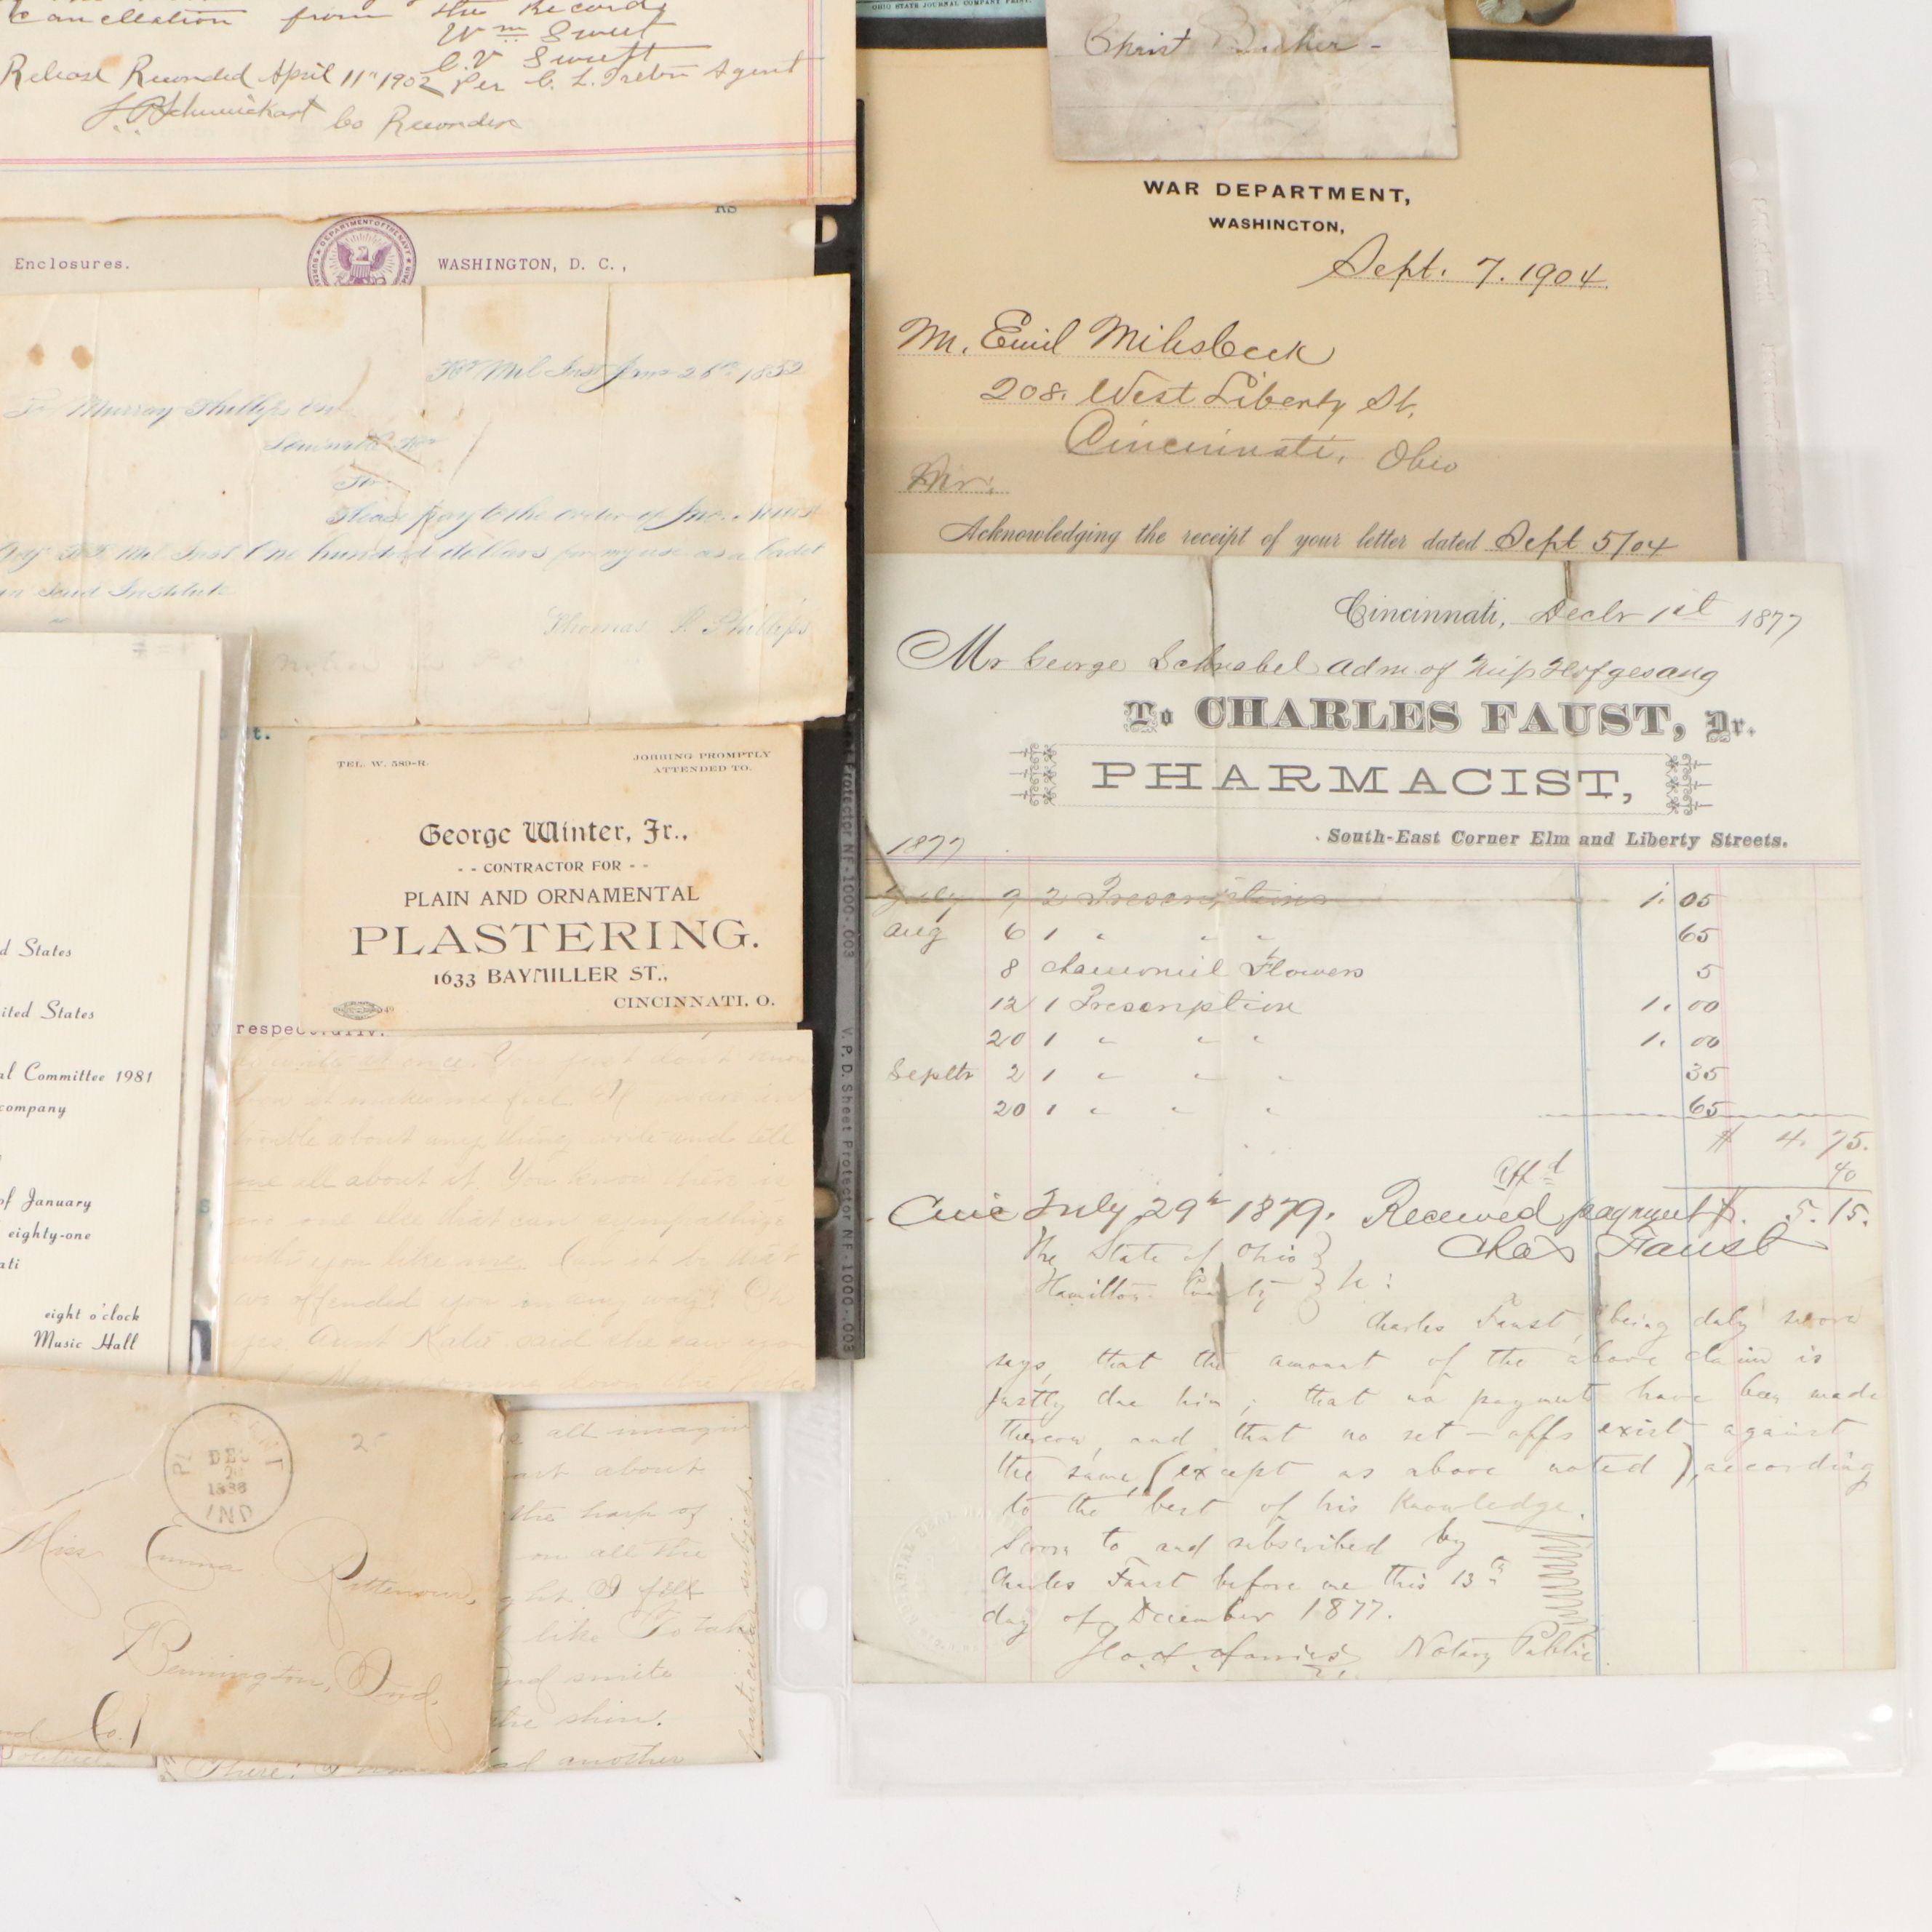 Cancellation from the Records
Wm Sweet
C. V Sweet
Release Recorded April 11th 1902 Per C. L. Agent
Co Recorder
OHIO STATE JOURNAL COMPANY PRINT.
Christ
RS
Enclosures.
WASHINGTON, D. C.,
26th 1852
To Murray Phillips
Please pay to the order of Jno.
Mil Inst One hundred dollars for my use as a Cadet
in Said Institute
Thomas Phillips
WAR DEPARTMENT,
WASHINGTON,
Sept. 7. 1904.
Mr. Emil
208. West Liberty St.
Cincinnati, Ohio
Mr:
Acknowledging the receipt of your letter dated Sept 5/04
TEL. W. 589-R.
JOBBING PROMPTLY
ATTENDED TO.
George Winter, Jr.,
- - CONTRACTOR FOR - -
PLAIN AND ORNAMENTAL
PLASTERING.
1633 BAYMILLER ST.,
CINCINNATI, O.
respectfully.
Cincinnati, Decbr 1st 1877
Mr George Schnabel adm. of Hofgesang
To CHARLES FAUST, Dr.
PHARMACIST,
South-East Corner Elm and Liberty Streets.
1877
July 9 2 Prescriptions 1. 05
Aug 6 1 " " " 65
8 Chamomil Flowers 5
12 1 Prescription 1. 00
20 1 " " " 1. 00
Septbr 2 1 " " " 35
20 1 " " " 65
$ 4. 75.
Affd 40
Cinc July 29th 1879. Received payment $. 5. 15.
Chas Faust
The State of Ohio
Hamilton County
Charles Faust, being duly sworn
says, that the amount of the above claim is
justly due him; that no payment have been made
thereon, and that no set-offs exist against
the same, (except as above noted), according
to the best of his knowledge.
Sworn to and subscribed by
Charles Faust before me this 13th
day of December 1877.
Notary Public.
V. P. D. Sheet Protector NF-1000-003
d States
ited States
al Committee 1981
company
of January
eighty-one
ati
eight o'clock
Music Hall
at once.
trouble about any thing write and tell
me all about it. You know there is
no one else that can sympathize
with you like me.
offended you in any way?
Aunt Katie said she saw you
DEC
1888
IND
2
Miss Emma
Bennington, Ind.
Co.
all imagin
about
the harp of
on all the
I felt
like To take
and smite
the shin.
There! another
particular subject.